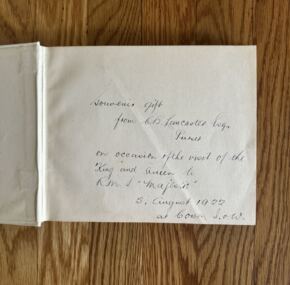 Souvenir gift
from C.B. Lancaster Esq.
Purser
on occasion of the visit of the
King and Queen to
R.M.S "Majestic"
5. August 1922
at Cowes I.O.W.